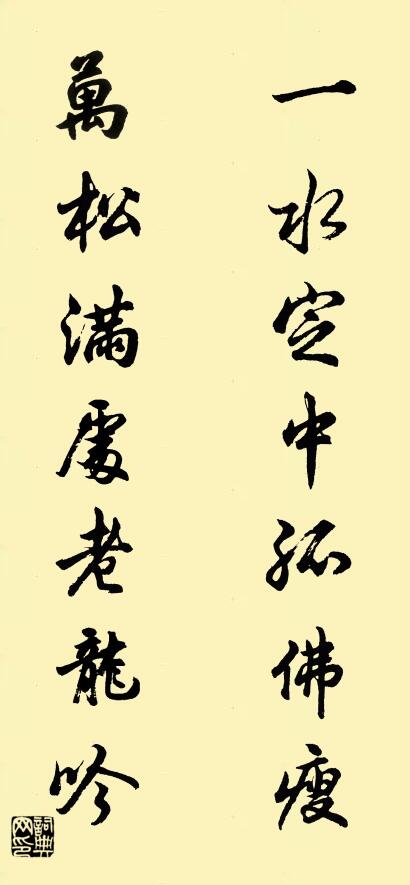 一水定中孤佛瘦
萬松滿處老龍吟
詞典网印